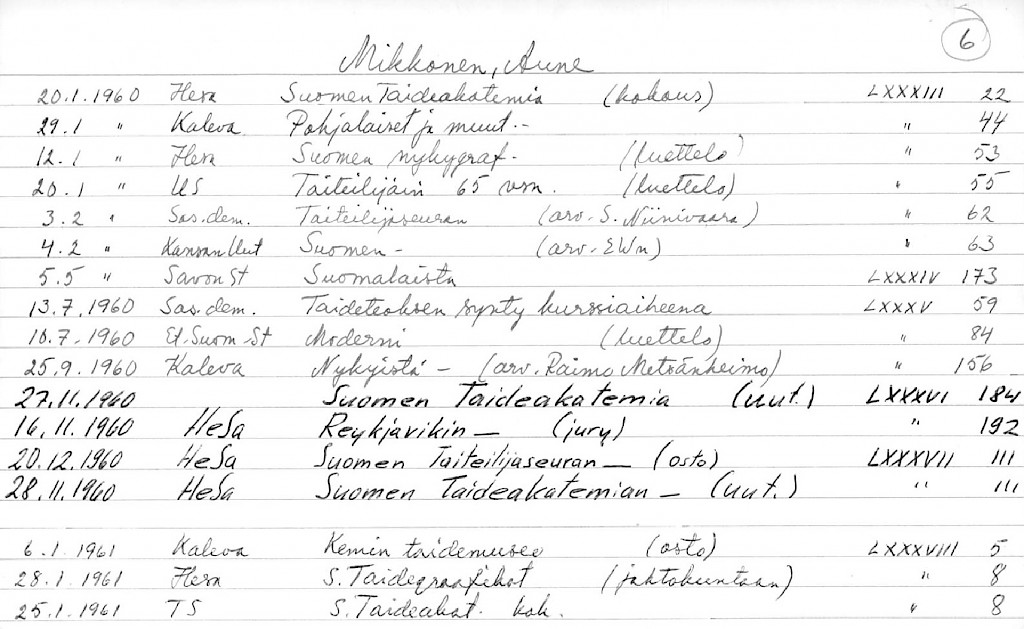 6
Mikkonen, Aune
20.1.1960 Hesa Suomen Taideakatemia (kokous) LXXXIII 22
29.1 " Kaleva Pohjalaiset ja muut.- " 44
12.1 " Hesa Suomen nykygraf.- (luettelo) " 53
20.1 " US Taiteilijain 65 vsn. (luettelo) " 55
3.2 " Sos.dem. Taiteilijaseuran (arv. S. Niinivaara) " 62
4.2 " Kansan Uut Suomen - (arv. EWn) " 63
5.5 " Savon St Suomalaista LXXXIV 173
13.7.1960 Sos.dem. Taideteoksen synty kurssiaiheena LXXXV 59
10.7.1960 Et.Suom.St Moderni (luettelo) " 84
25.9.1960 Kaleva Nykyistä - (arv. Raimo Metsänheimo) " 156
27.11.1960 Suomen Taideakatemia (uut.) LXXXVI 184
16.11.1960 HeSa Reykjavikin - (jury) " 192
20.12.1960 HeSa Suomen Taiteilijaseuran - (osto) LXXXVII 111
28.11.1960 HeSa Suomen Taideakatemian - (uut.) " 111
6.1.1961 Kaleva Kemin taidemuseo (osto) LXXXVIII 5
28.1.1961 Hesa S. Taidegraafikot (johtokuntaan) " 8
25.1.1961 TS S. Taideakat. kok. " 8